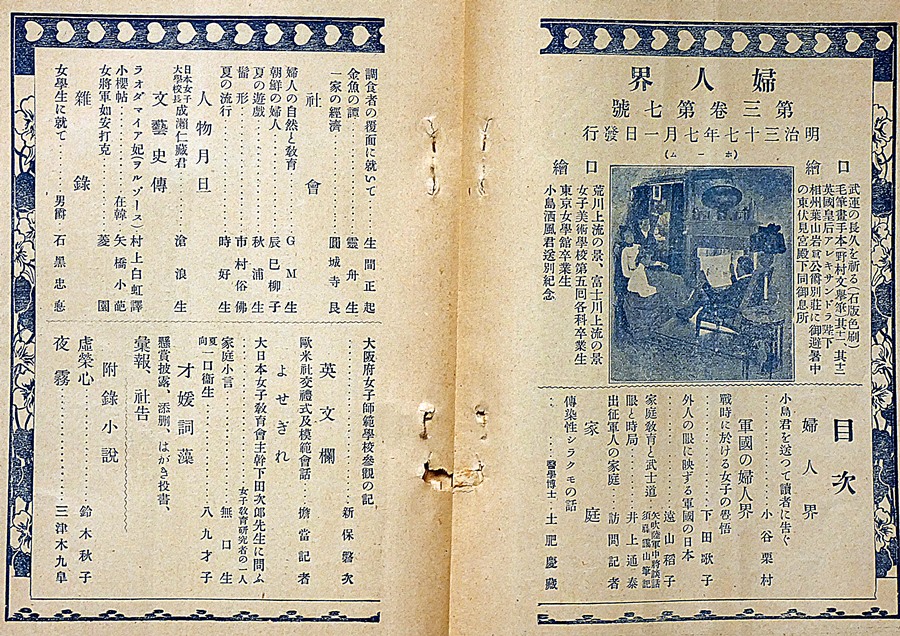 婦人界
第三卷第七號
明治三十七年七月一日發行
口繪
(ホーム)
口繪
武運の長久を祈る(石版色刷)
毛筆畫手本(野村文擧筆)(其十一)(其十二)
英國皇后アレキサンドラ陛下
相州葉山岩倉公爵別莊に御避暑中
の東伏見宮殿下同御息所
荒川上流の景、富士川上流の景
女子美術學校第五囘各科卒業生
東京女學館卒業生
小島洒風君送別紀念
目次
婦人界
小島君を送つて讀者に告ぐ
小谷栗村
軍國の婦人界
戰時に於ける女子の覺悟
下田歌子
外人の眼に映ずる軍國の日本
遠山稻子
家庭敎育と武士道
矢吹陸軍中將談話
須藤靄山筆記
眼と時局
井上通泰
出征軍人の家庭
訪問記者
家庭
傳染性シラクモの話
醫學博士 土肥慶藏
調食者の覆面に就いて
生間正起
金魚の譚
靈舟生
一家の經濟
圓城寺良
社會
婦人の自然と敎育
GM生
朝鮮の婦人
辰巳柳子
夏の遊戱
秋浦生
髷形
市村俗佛
夏の流行
時好生
人物月旦
日本女子大學校長成瀨仁藏君
滄浪生
文藝史傳
ラオダマイア妃(ヲルヅォース)
村上白虹譯
小櫻帖
在韓 矢橋小葩
女將軍如安打克
菱園
雜錄
女學生に就て
男爵 石黑忠悳
大阪府女子師範學校參觀の記
新保磐次
英文欄
歐米社交禮式及模範會話
擔當記者
よせぎれ
大日本女子敎育會主幹下田次郞先生に問ふ
女子敎育硏究者の一人
家庭小言
無口生
夏向一口衞生
八九才子
才媛詞藻
懸賞披露、添刪、はがき投書、
彙報、社告
附錄小說
虛榮心
鈴木秋子
夜霧
三津木九皐